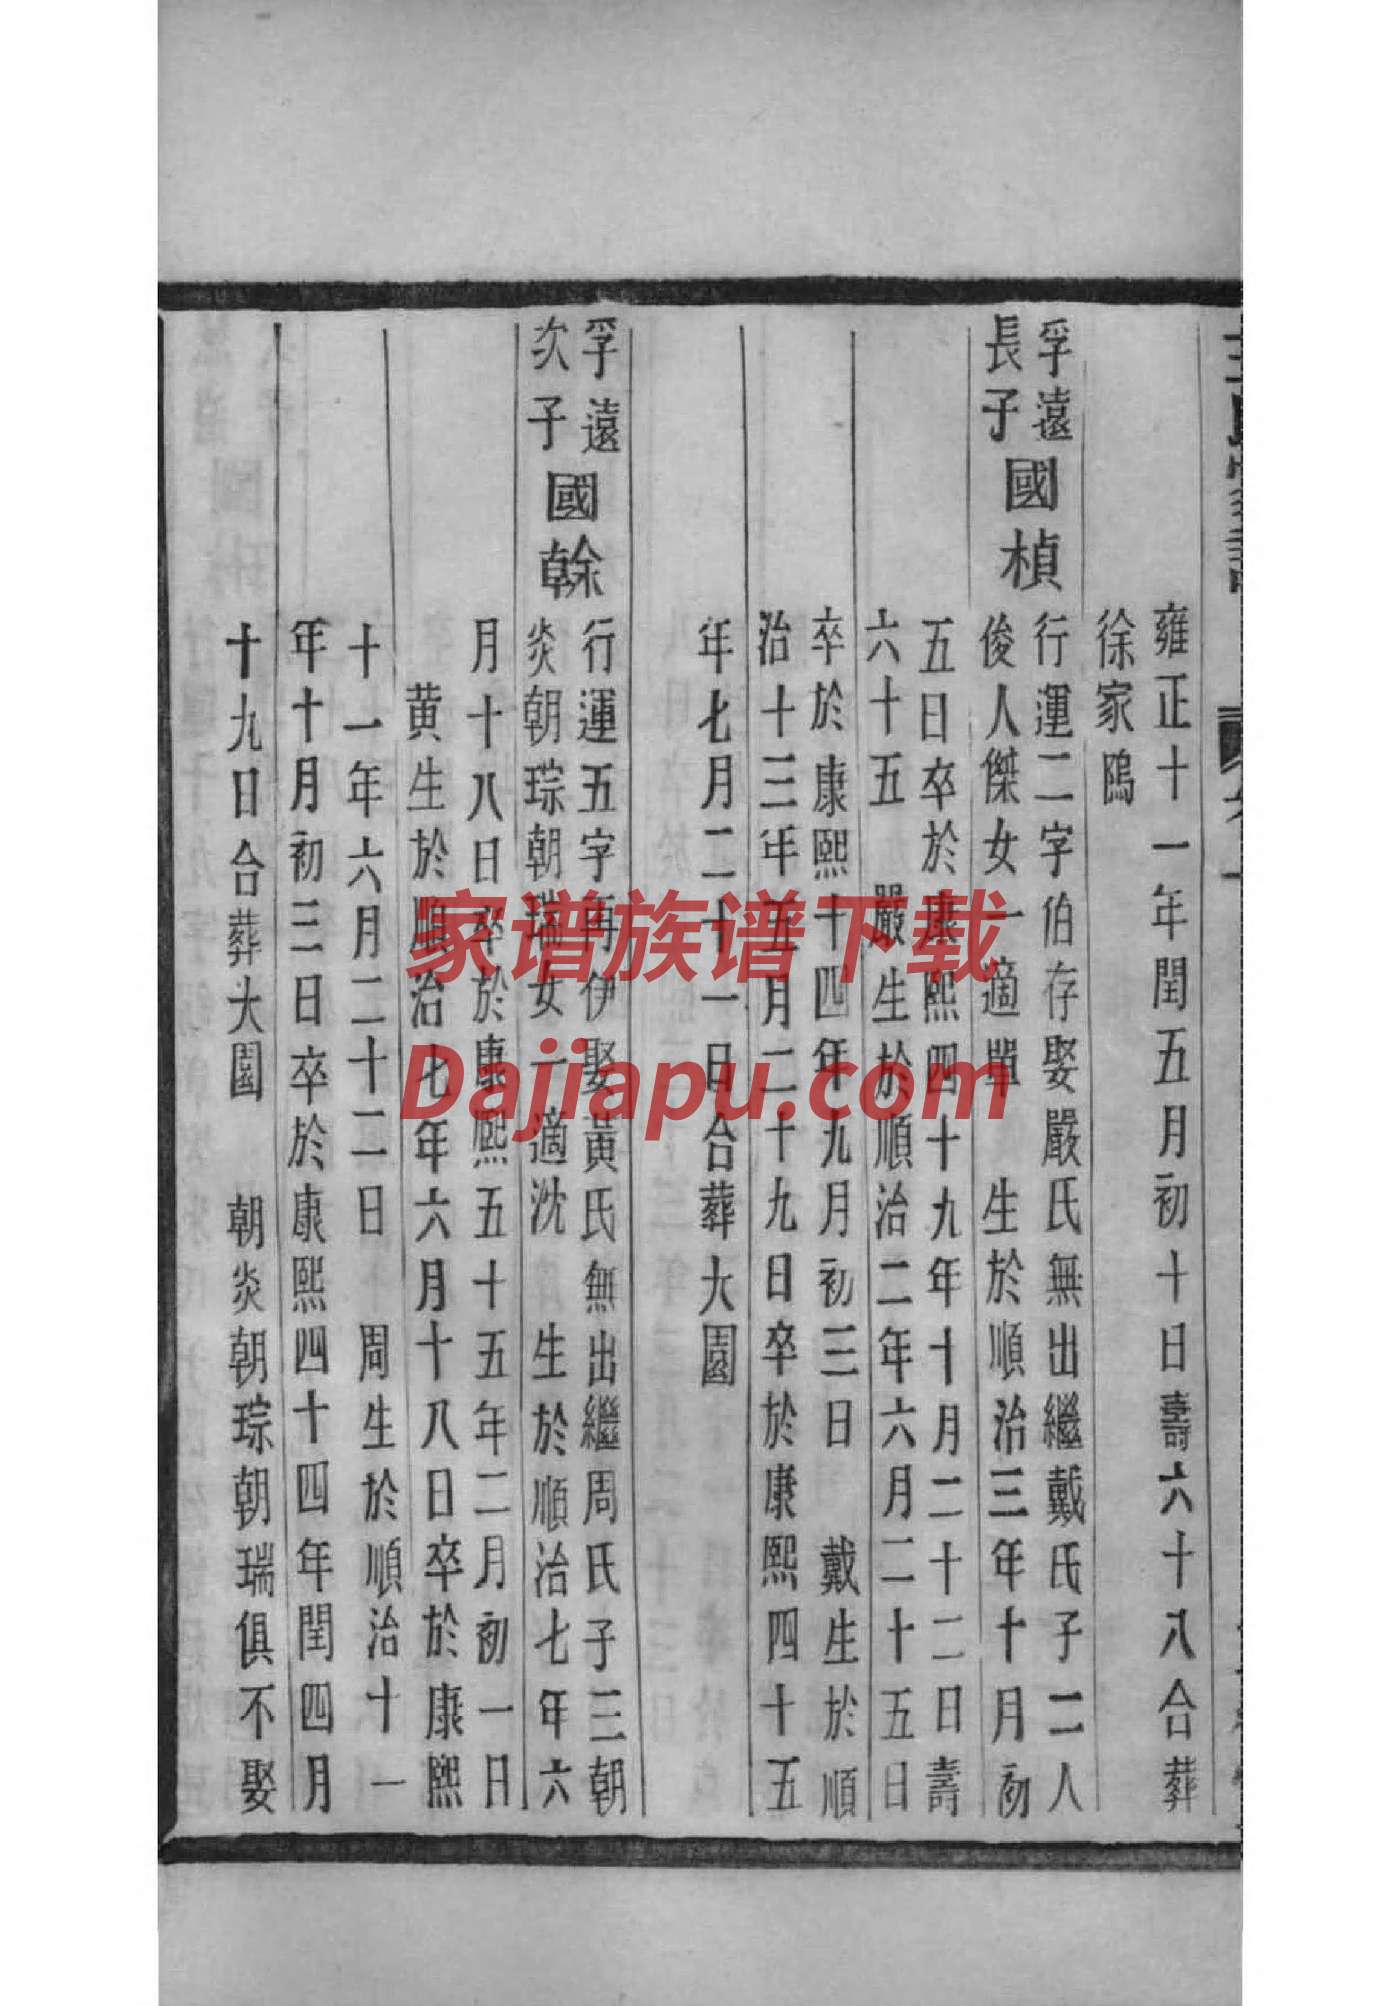 雍正十一年閏五月初十日壽六十八合葬
徐家隖
孚遠
長子
國楨
行運二字伯存娶嚴氏無出繼戴氏子二人
俊人傑女一適單　生於順治三年十月初
五日卒於康熙四十九年十月二十二日壽
六十五　嚴生於順治二年六月二十五日
卒於康熙十四年九月初三日　戴生於順
治十三年五月二十九日卒於康熙四十五
年七月二十一日合葬大園
孚遠
次子
國榦
行運五字再伊娶黃氏無出繼周氏子三朝
炎朝琮朝瑞女一適沈　生於順治七年六
月十八日卒於康熙五十五年二月初一日
黄生於順治七年六月十八日卒於康熙
十一年六月二十二日　周生於順治十一
年十月初三日卒於康熙四十四年閏四月
十九日合葬大園　朝炎朝琮朝瑞俱不娶
家谱族谱下载
Dajiapu.com